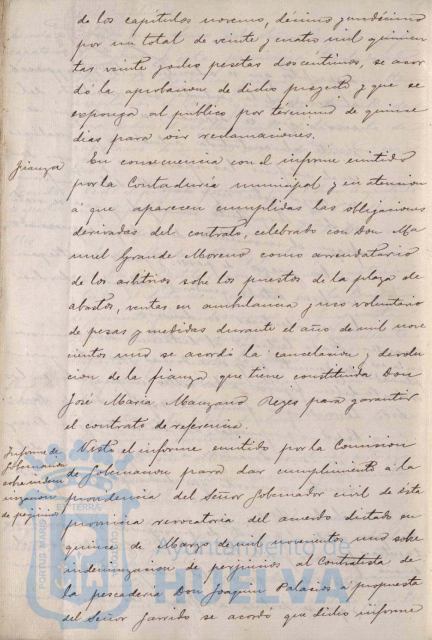 de los capítulos noveno, décimo y undécimo
por un total de veinte y cuatro mil quinien
tas veinte y ocho pesetas dos centimos, se acor
dó la aprobacion de dicho proyecto y que se
exponga al público por término de quince
dias para oir reclamaciones.
Fianza
En consecuencia con el informe emitido
por la Contaduría municipal y en atencion
á que aparecen cumplidas las obligaciones
derivadas del contrato, celebrado con Don Ma
nuel Grande Moreno como arrendatario
de los arbitrios sobre los puestos de la plaza de
abastos, ventas en ambulancia y uso voluntario
de pesas y medidas durante el año de mil nove
cientos uno se acordó la cancelacion y devolu
cion de la fianza que tiene constituida Don
José María Manzano Reyes para garantir
el contrato de referencia.
Informe de
Gobernacion
sobre indem
nizacion
de perjuicios
Visto el informe emitido por la Comision
de Gobernacion para dar cumplimiento á la
providencia del Señor Gobernador civil de esta
provincia revocatoria del acuerdo dictado en
quince de Marzo de mil novecientos uno sobre
indemnizacion de perjuicios al Contratista de
la pescaderia Don Joaquin Palacios á propuesta
del Señor Garrido se acordó que dicho informe
PORTUS MARIS ET TERRAE CUSTODIA
Ayuntamiento de
HUELVA